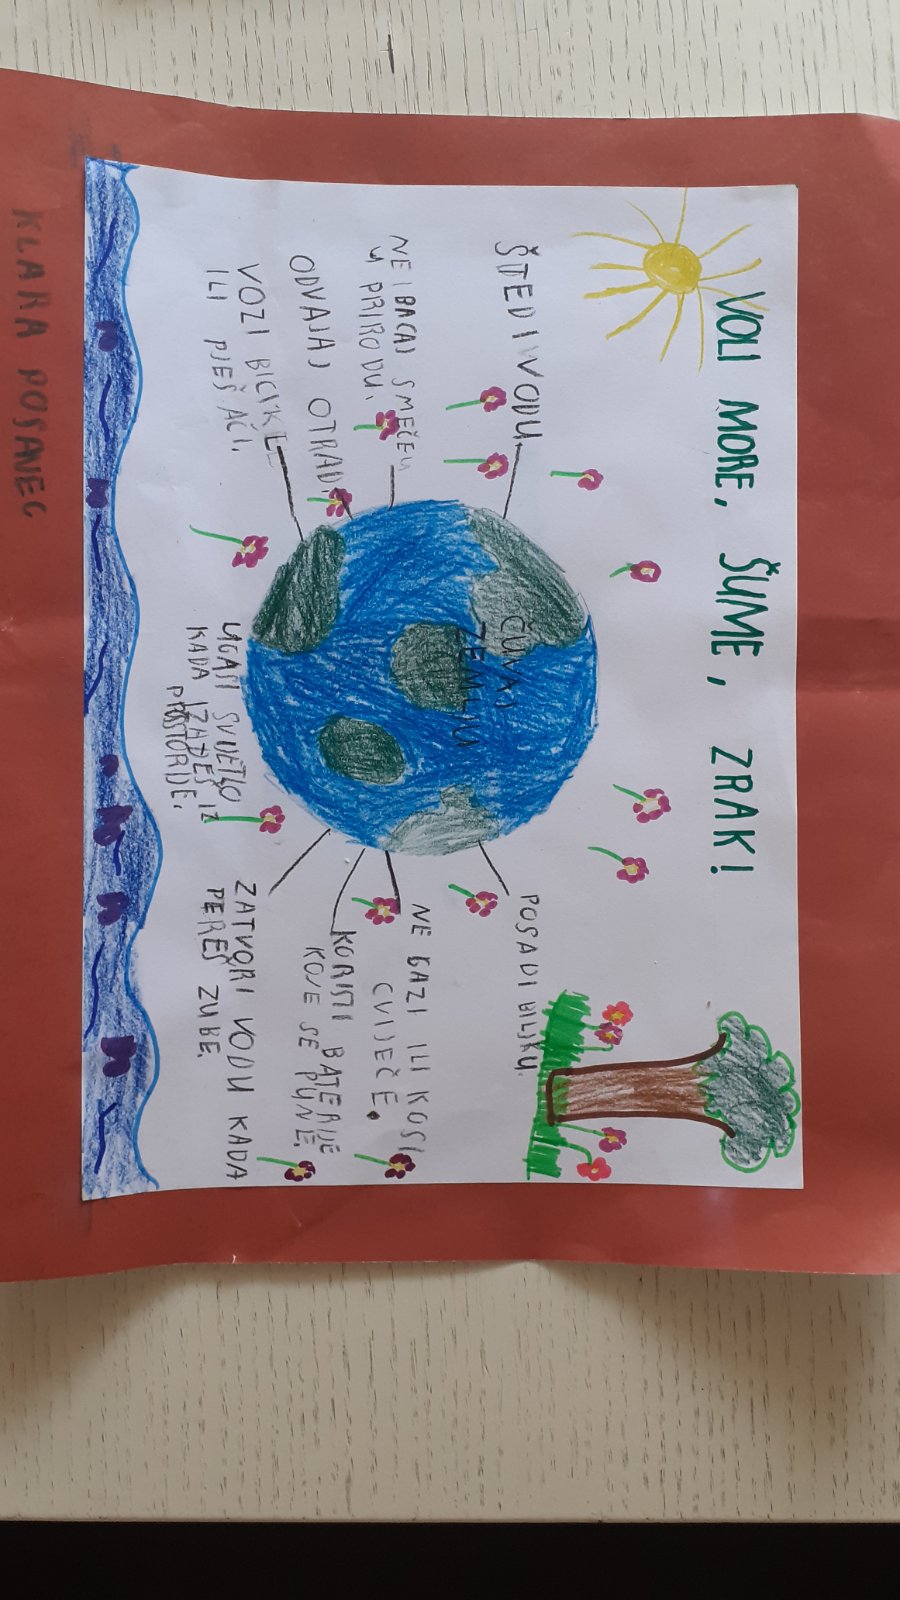 VOLI MORE, ŠUME, ZRAK!
ŠTEDI VODU
NE BACAJ SMEĆE
U PRIRODU.
ODVAJAJ OTPAD.
VOZI BICIKL
ILI PJEŠAČI.
ČUVAJ
ZEMLJU
POSADI BILJKU.
NE GAZI ILI KOSI
CVIJEĆE.
KORISTI BATERIJE
KOJE SE PUNE.
ZATVORI VODU KADA
PEREŠ ZUBE.
UGASI SVIJETLO
KADA IZAĐEŠ IZ
PROSTORIJE.
KLARA POSANEC